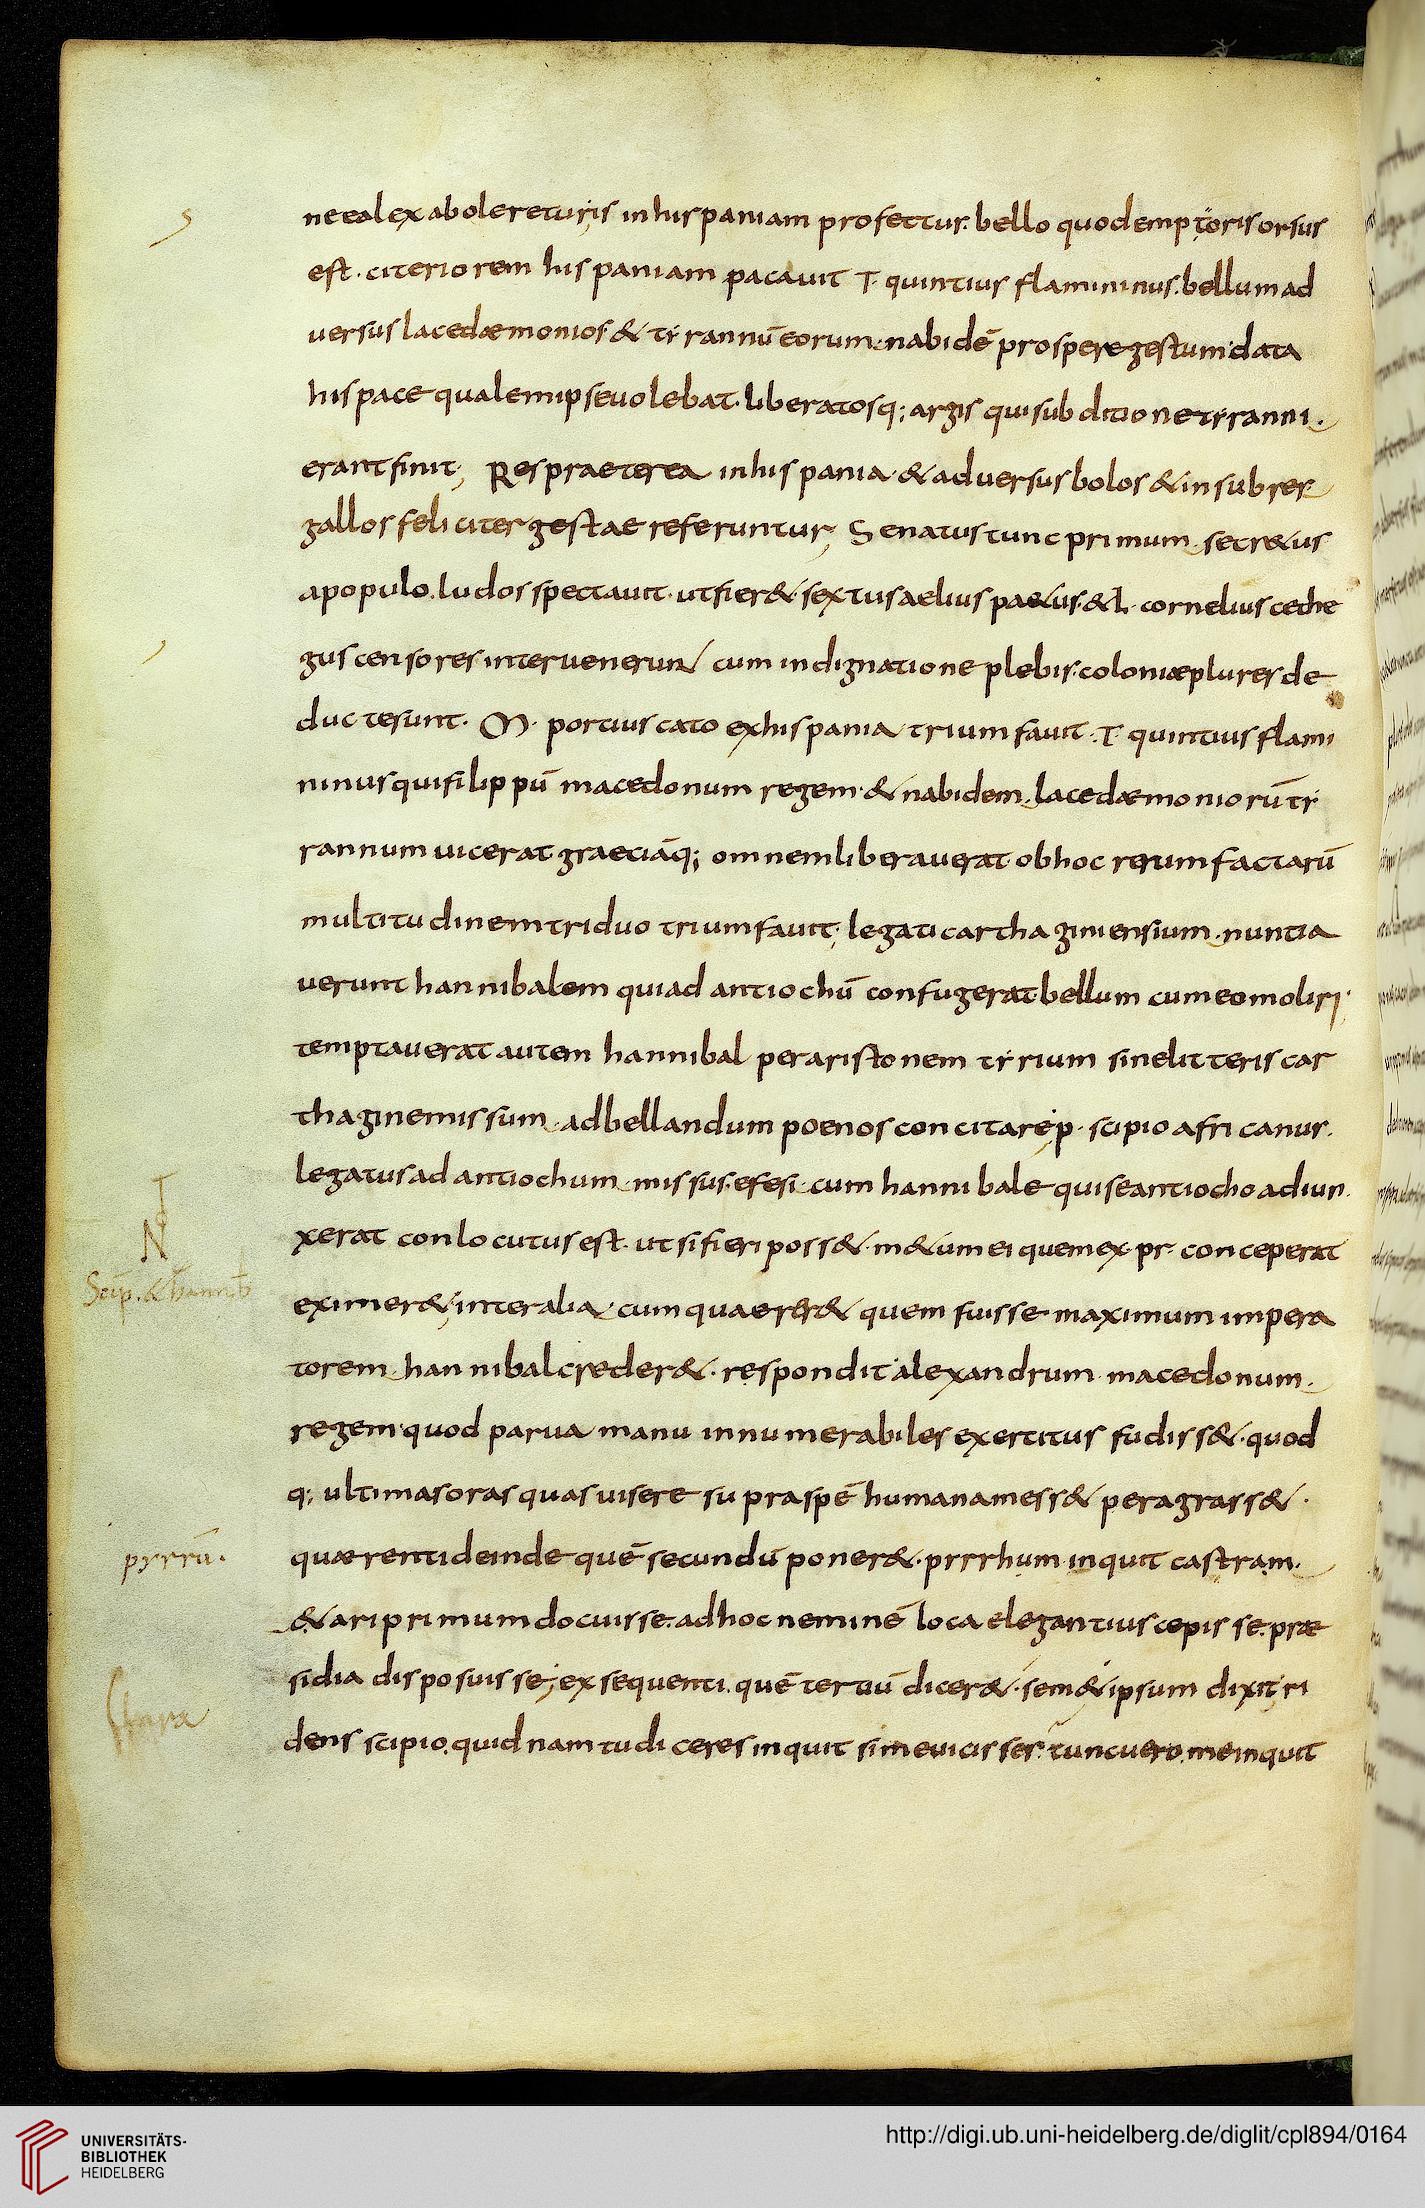 ne ea lex aboleretur is inhispaniam profectus. bello quod emptoris orsus
est. citeriorem hispaniam pacauit T. quintius flamininus. bellum ad
uersus lacedæmonios & tyrannū eorum. nabidē prospere gestum data
his pace qualem ipse uolebat. liberatosq; argis qui sub ditione tyranni.
erant finit; Res praeterea inhispania & aduersus bolos & insubres
gallos feliciter gestae referuntur; Senatus tunc primum. secr&us
apopulo. ludos spectauit. ut fier&. sextus aelius pa&us. & L. cornelius cethe
gus censores interuenerunt cum indignatione plebis. coloniæ plures de
ductesunt. M. portius cato exhispania triumfauit. T. quintius flami
ninus qui filippū macedonum regem. & nabidem. lacedæmoniorū ty
rannum uicerat graeciāq; omnem liberauerat. ob hoc rerum factarū
multitudinem triduo triumfauit; legati carthaginiensium. nuntia
uerunt hannibalem qui ad antiochū confugerat bellum cum eo moliri;
temptauerat autem hannibal per aristonem tyrium sine litteris car
thagine missum. ad bellandum poenos concitare; p. scipio africanus.
legatus ad antiochum missus. efesi cum hannibale qui se antiocho adiun
xerat conlocutus est. ut si fieri poss&. m&um ei quem ex. pr. conceperat
eximer&; inter alia cum quaerer& quem fuisse maximum impera
torem hannibal creder&. respondit alexandrum macedonum.
regem. quod parua manu innumerabiles exercitus fudiss&. quod
q; ultimas oras quas uisere supra spē humanam ess& peragrass&.
quærenti deinde quē secundū poner&. pyrrhum inquit castram.
&ari primum docuisse. ad hoc neminē loca elegantius cepisse. præ
sidia disposuisse; exsequenti. quē tertiū dicer&. sem&ipsum dixit; ri
dens scipio. quidnam tu diceres inquit si me uicisses. tunc uero. me inquit
Scip. & hannib
pyrrū.
UNIVERSITÄTS-
BIBLIOTHEK
HEIDELBERG
http://digi.ub.uni-heidelberg.de/diglit/cpl894/0164